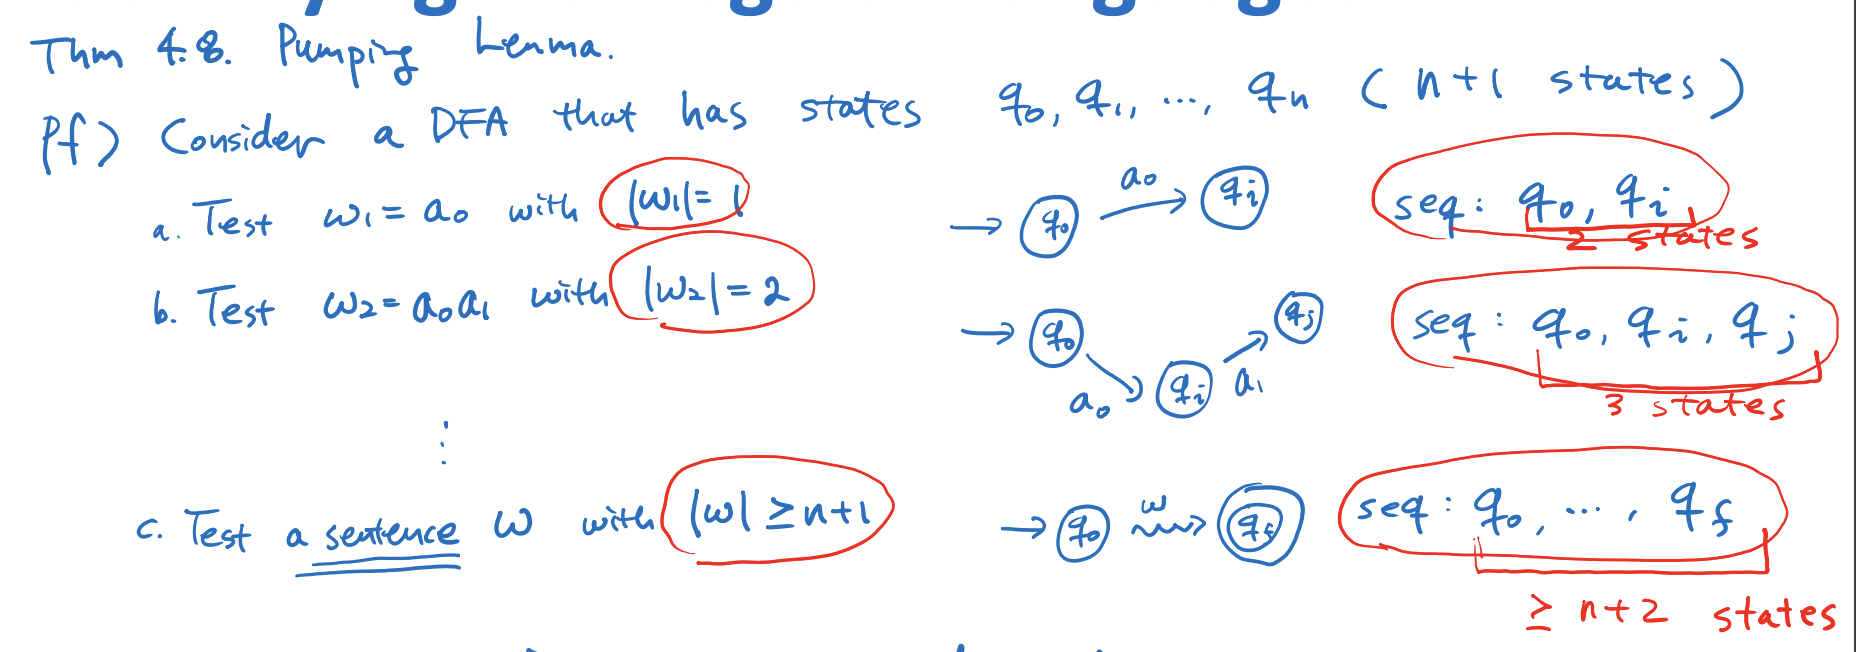 Thm 4.8. Pumping Lemma.
Pf) Consider a DFA that has states q₀, q₁, ..., qₙ (n+1 states)
a. Test ω₁ = a₀ with |ω₁| = 1
q₀ a₀ qᵢ
seq: q₀, qᵢ
2 states
b. Test ω₂ = a₀a₁ with |ω₂| = 2
q₀ a₀ qᵢ a₁ qⱼ
seq: q₀, qᵢ, qⱼ
3 states
⋮
c. Test a sentence ω with |ω| ≥ n+1
q₀ ω q_f
seq: q₀, ..., q_f
≥ n+2 states